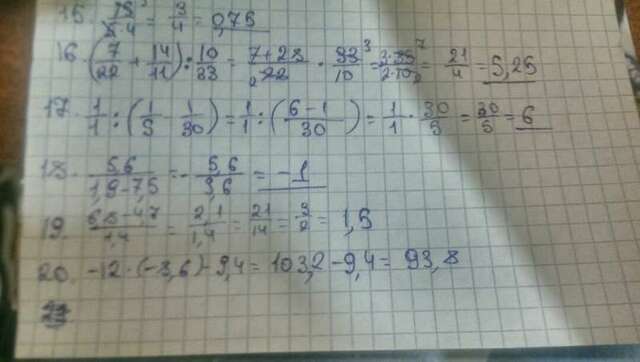 15. 3/4 = 0,75
16. (7/22 + 14/11) : 10/33 = 7+28/22 · 33/10 = 3·35/2·10 = 21/4 = 5,25
17. 1/1 : (1/5 - 1/30) = 1/1 : (6-1/30) = 1/1 · 30/5 = 30/5 = 6
18. 5,6/1,9-7,5 = - 5,6/5,6 = -1
19. 6,8-4,7/1,4 = 2,1/1,4 = 21/14 = 3/2 = 1,5
20. -12 · (-8,6) - 9,4 = 103,2 - 9,4 = 93,8